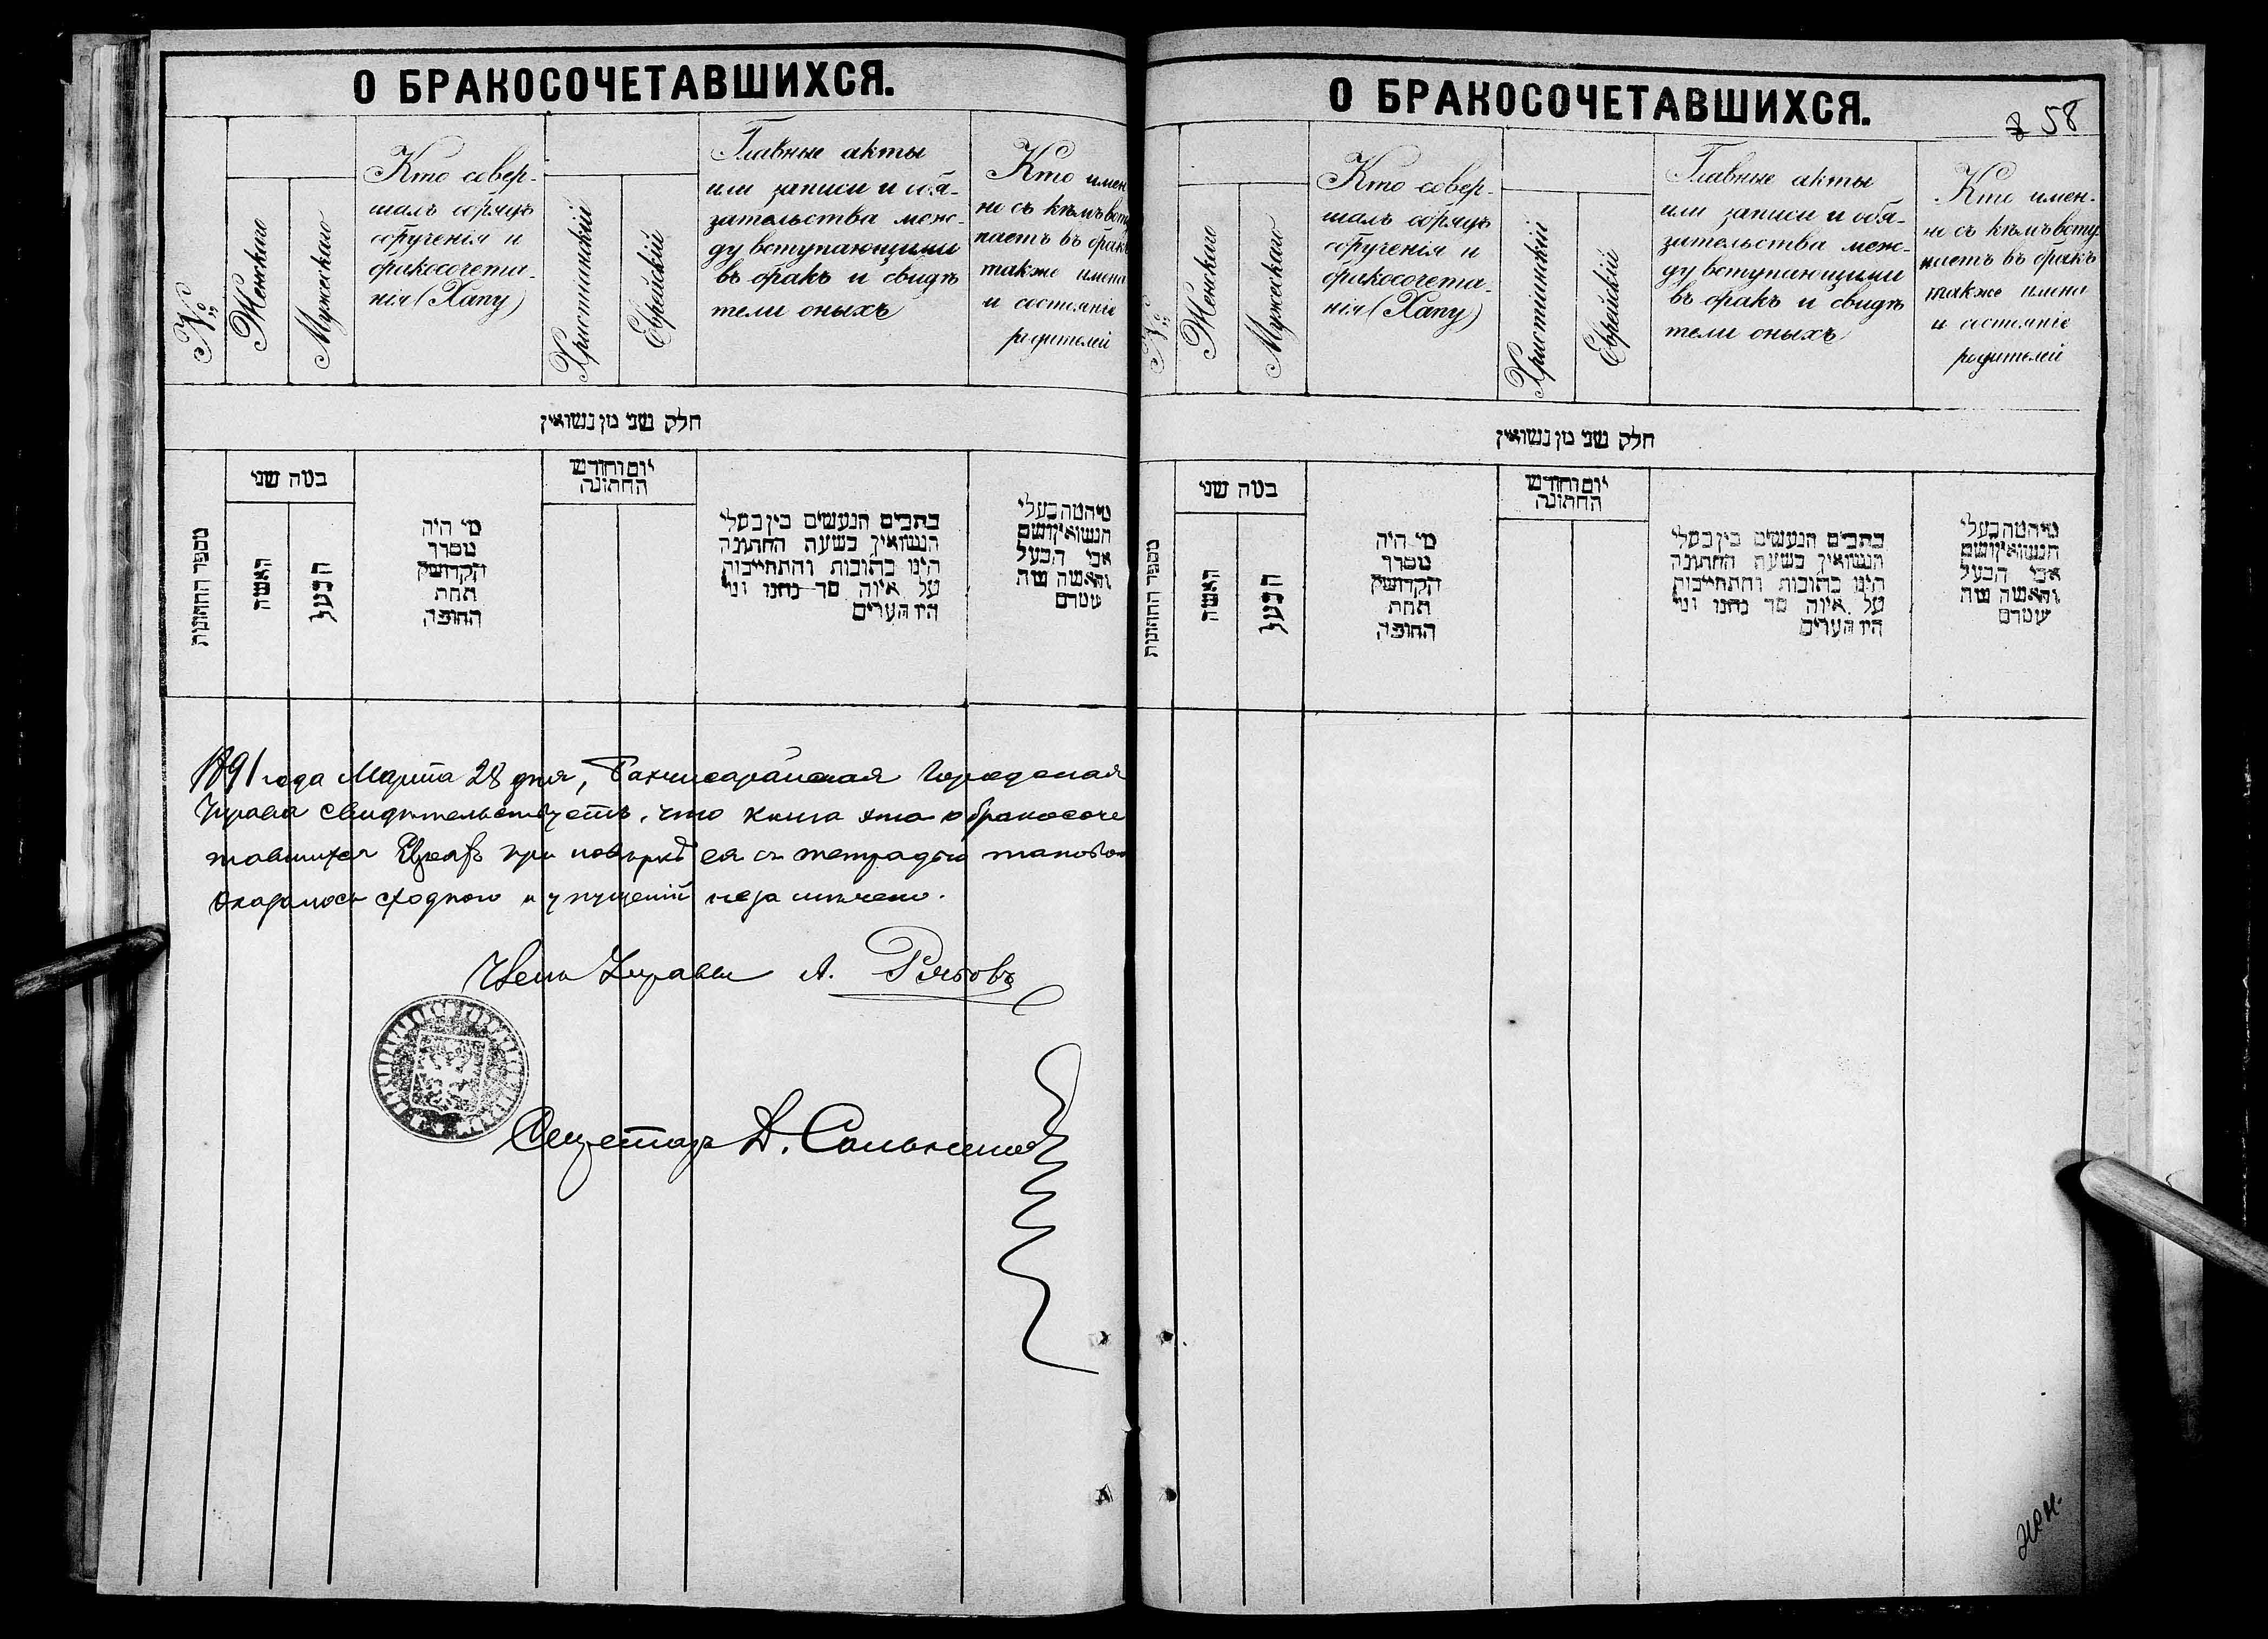 О БРАКОСОЧЕТАВШИХСЯ.
№
Женскаго
Мужескаго
Кто совер-
шалъ обрядъ
обрученія и
бракосочета-
нія (Хапу)
Христіанскій
Еврейскій
Главные акты
или записи и обя-
зательства меж-
ду вступающими
въ бракъ и свидѣ
тели оныхъ
Кто имен
но съ кѣмъ всту
паетъ въ бракъ
также имена
и состояніе
родителей
חלק שני מן נשואין
מספר החתונות
במה שני
האשה
הבעל
מי היה
מסדר
הקדושין
תחת
החופה
יום וחודש
החתונה
כתבים הנעשים בין בעלי
הנשואין בשעת החתונה
היינו כתובות והתחייבות
על איזה סך נתנו ומי
היו העדים
מי המה בעלי
הנשואין ושם
אבי הבעל
והאשה ומה
מעמדם
1891 года Марта 28 дня, Бахчисарайская Городская
Управа свидѣтельствуетъ, что книга эта о бракосоче
тавшихся при повѣркѣ ея съ тетрадью таковой
оказалось сходною и упущеній не замѣчено.
Членъ Управы А. Рябовъ
Секретарь
О БРАКОСОЧЕТАВШИХСЯ.
58
№
Женскаго
Мужескаго
Кто совер-
шалъ обрядъ
обрученія и
бракосочета-
нія (Хапу)
Христіанскій
Еврейскій
Главные акты
или записи и обя-
зательства меж-
ду вступающими
въ бракъ и свидѣ
тели оныхъ
Кто имен-
но съ кѣмъ всту
паетъ въ бракъ
также имена
и состояніе
родителей
חלק שני מן נשואין
מספר החתונות
במה שני
האשה
הבעל
מי היה
מסדר
הקדושין
תחת
החופה
יום וחודש
החתונה
כתבים הנעשים בין בעלי
הנשואין בשעת החתונה
היינו כתובות והתחייבות
על איזה סך נתנו ומי
היו העדים
מי המה בעלי
הנשואין ושם
אבי הבעל
והאשה ומה
מעמדם